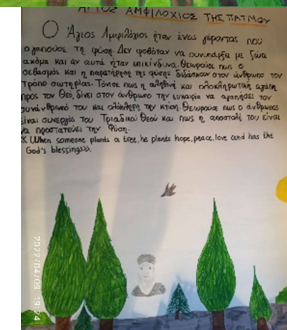 ΑΓΙΟΣ ΑΜΦΙΛΟΧΙΟΣ ΤΗΣ ΠΑΤΜΟΥ
Ο Άγιος Αμφιλόχιος ήταν ένας γέροντας που
αγαπούσε τη φύση. Δεν φοβόταν να συνυπάρξει με ζώα
ακόμα και αν αυτά ήταν επικίνδυνα. Θεωρούσε πως ο
σεβασμός και η παρατήρηση της φύσης διδάσκουν στον άνθρωπο τον
τρόπο σωτηρίας. Τόνιζε πως η αληθινή και ολοκληρωτική αγάπη
προς τον Θεό δίνει στον άνθρωπο την ευκαιρία να αγαπήσει τον
συνάνθρωπό του και ολόκληρη την κτίση. Θεωρούσε πως ο άνθρωπος
είναι συνεργός του Τριαδικού Θεού και πως η αποστολή του είναι
να προστατεύει την Φύση.
«When someone plants a tree, he plants hope, peace, love and has the
God's blessings».
2022/04/09 19:24